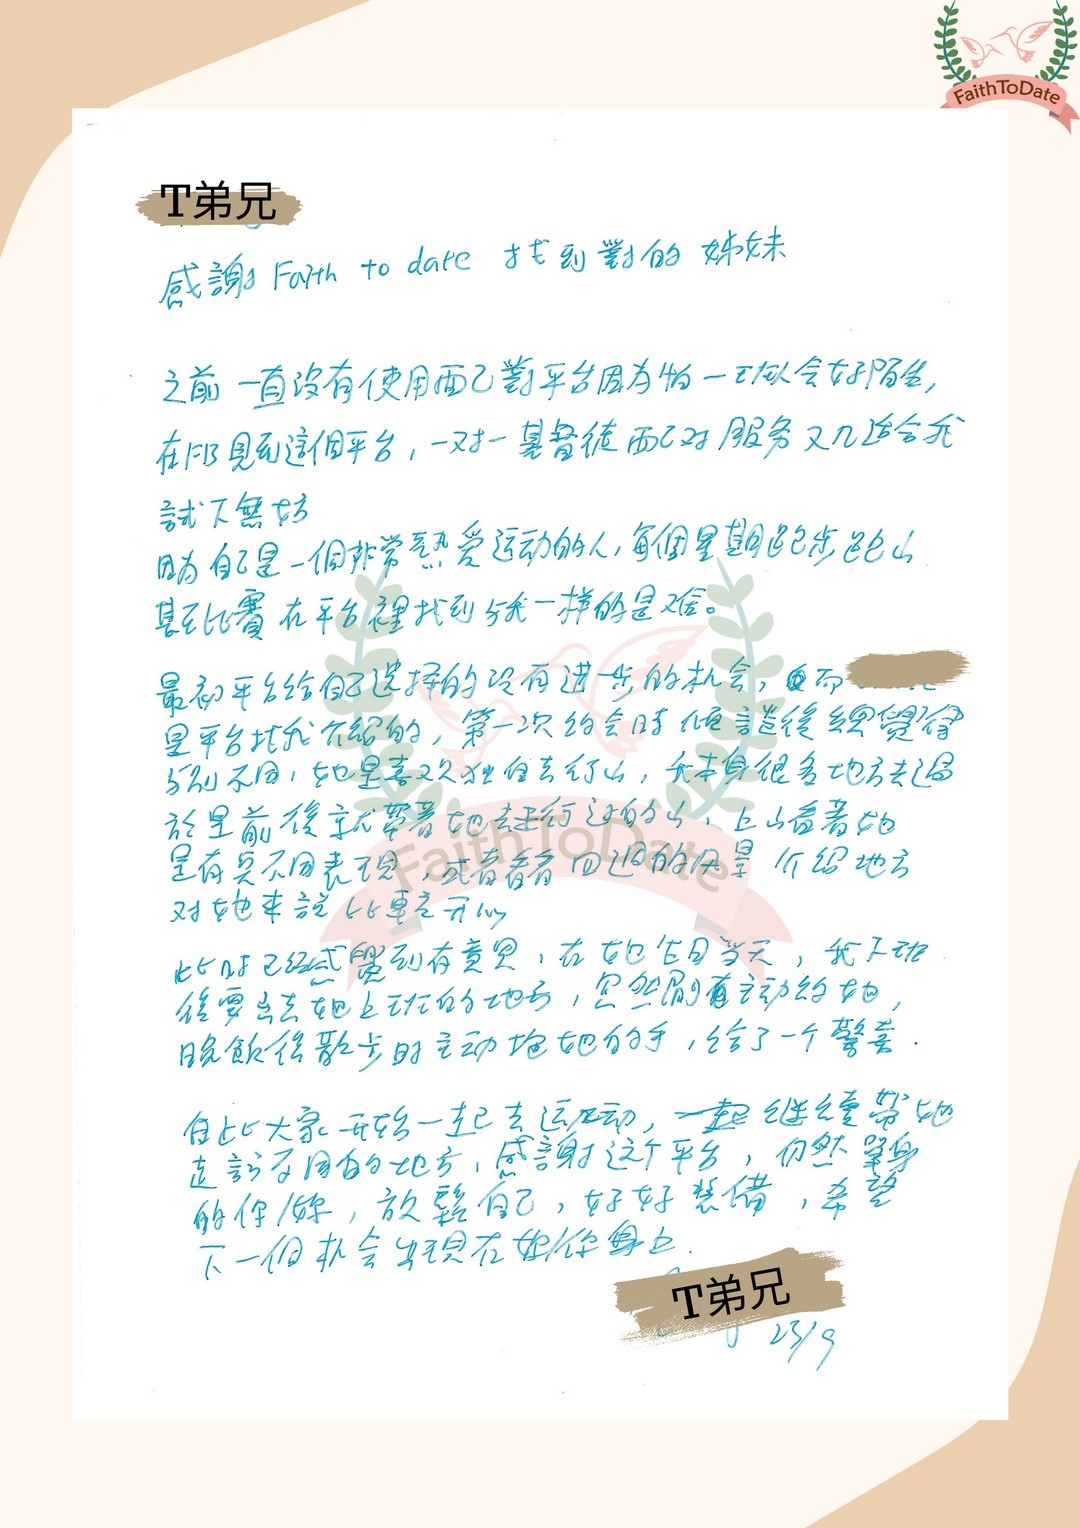 FaithToDate
T弟兄
感謝 Faith to date 找到對的 姊妹
之前一直沒有使用配對平台因為怕一班人会好陌生,
在FB見到這個平台,一对一基督徒配对服务又几适合我
試下無妨
因為自己是一個非常熱爱运动的人,每個星期跑步跑山
甚至比賽在平台裡找到与我一样的是难。
最初平台给自己选择的没有进一步的机会,而
是平台找我介绍的,第一次约会時傾談後總覺得
与别不同,她是喜欢独自去行山,我本身很多地方去過
於是前後就帶著她去行过的山,上山看著她
是有與不同表現,或者看看四週的风景 介紹地方
对她来說比較开心
此時已经感覺到有意思,在她生日当天,我下班
後要去她上班的地方,忽然間主动约她,
晚飯後散步時主动拖她的手,给了一个驚喜.
自此大家开始一起去运动,一起继續帶她
走訪不同的地方,感謝这个平台,仍然單身
的你/妳,放鬆自己,好好裝備,希望
下一個机会出現在妳/你身上.
T弟兄
23/9
FaithToDate